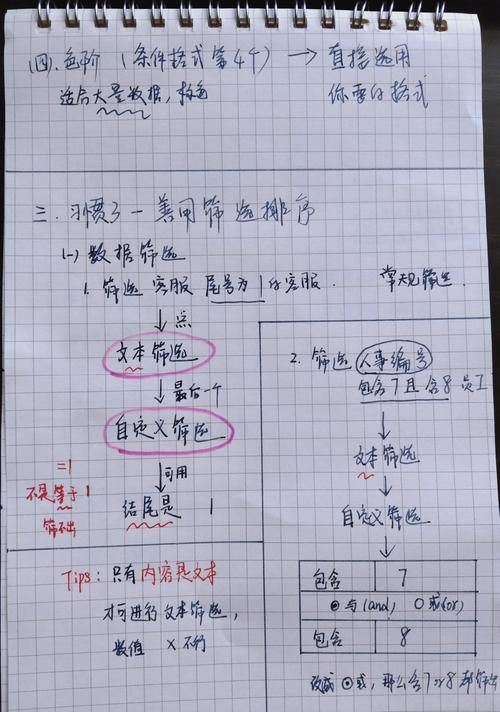 (四). 色阶 (条件格式第4个) → 直接选用
适合大量数据, 标色 你要的格式
三. 习惯3 - 善用筛选排序
(一) 数据筛选
1. 筛选 客服 尾号为1的客服. 常规筛选.
↓点
文本筛选
↓最后一个
自定义筛选
↓可用
结尾是 1
=1
不是等于1
筛不出
2. 筛选 人事编号
包含7且含8员工
↓
文本筛选
↓
自定义筛选
↓
包含 7
⊙与(and) ○或(or)
包含 8
改成⊙或, 那么含7or8都筛出
Tips: 只有内容是文本
才可进行文本筛选,
数值 × 不行